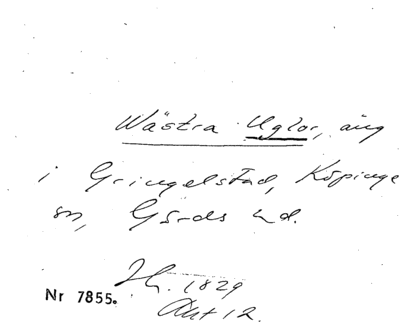 Wästra Uglor, äng
i Gringelstad, Köpinge
sn, Gärds hd.
Sk. 1829
Akt 12.
Nr 7855.